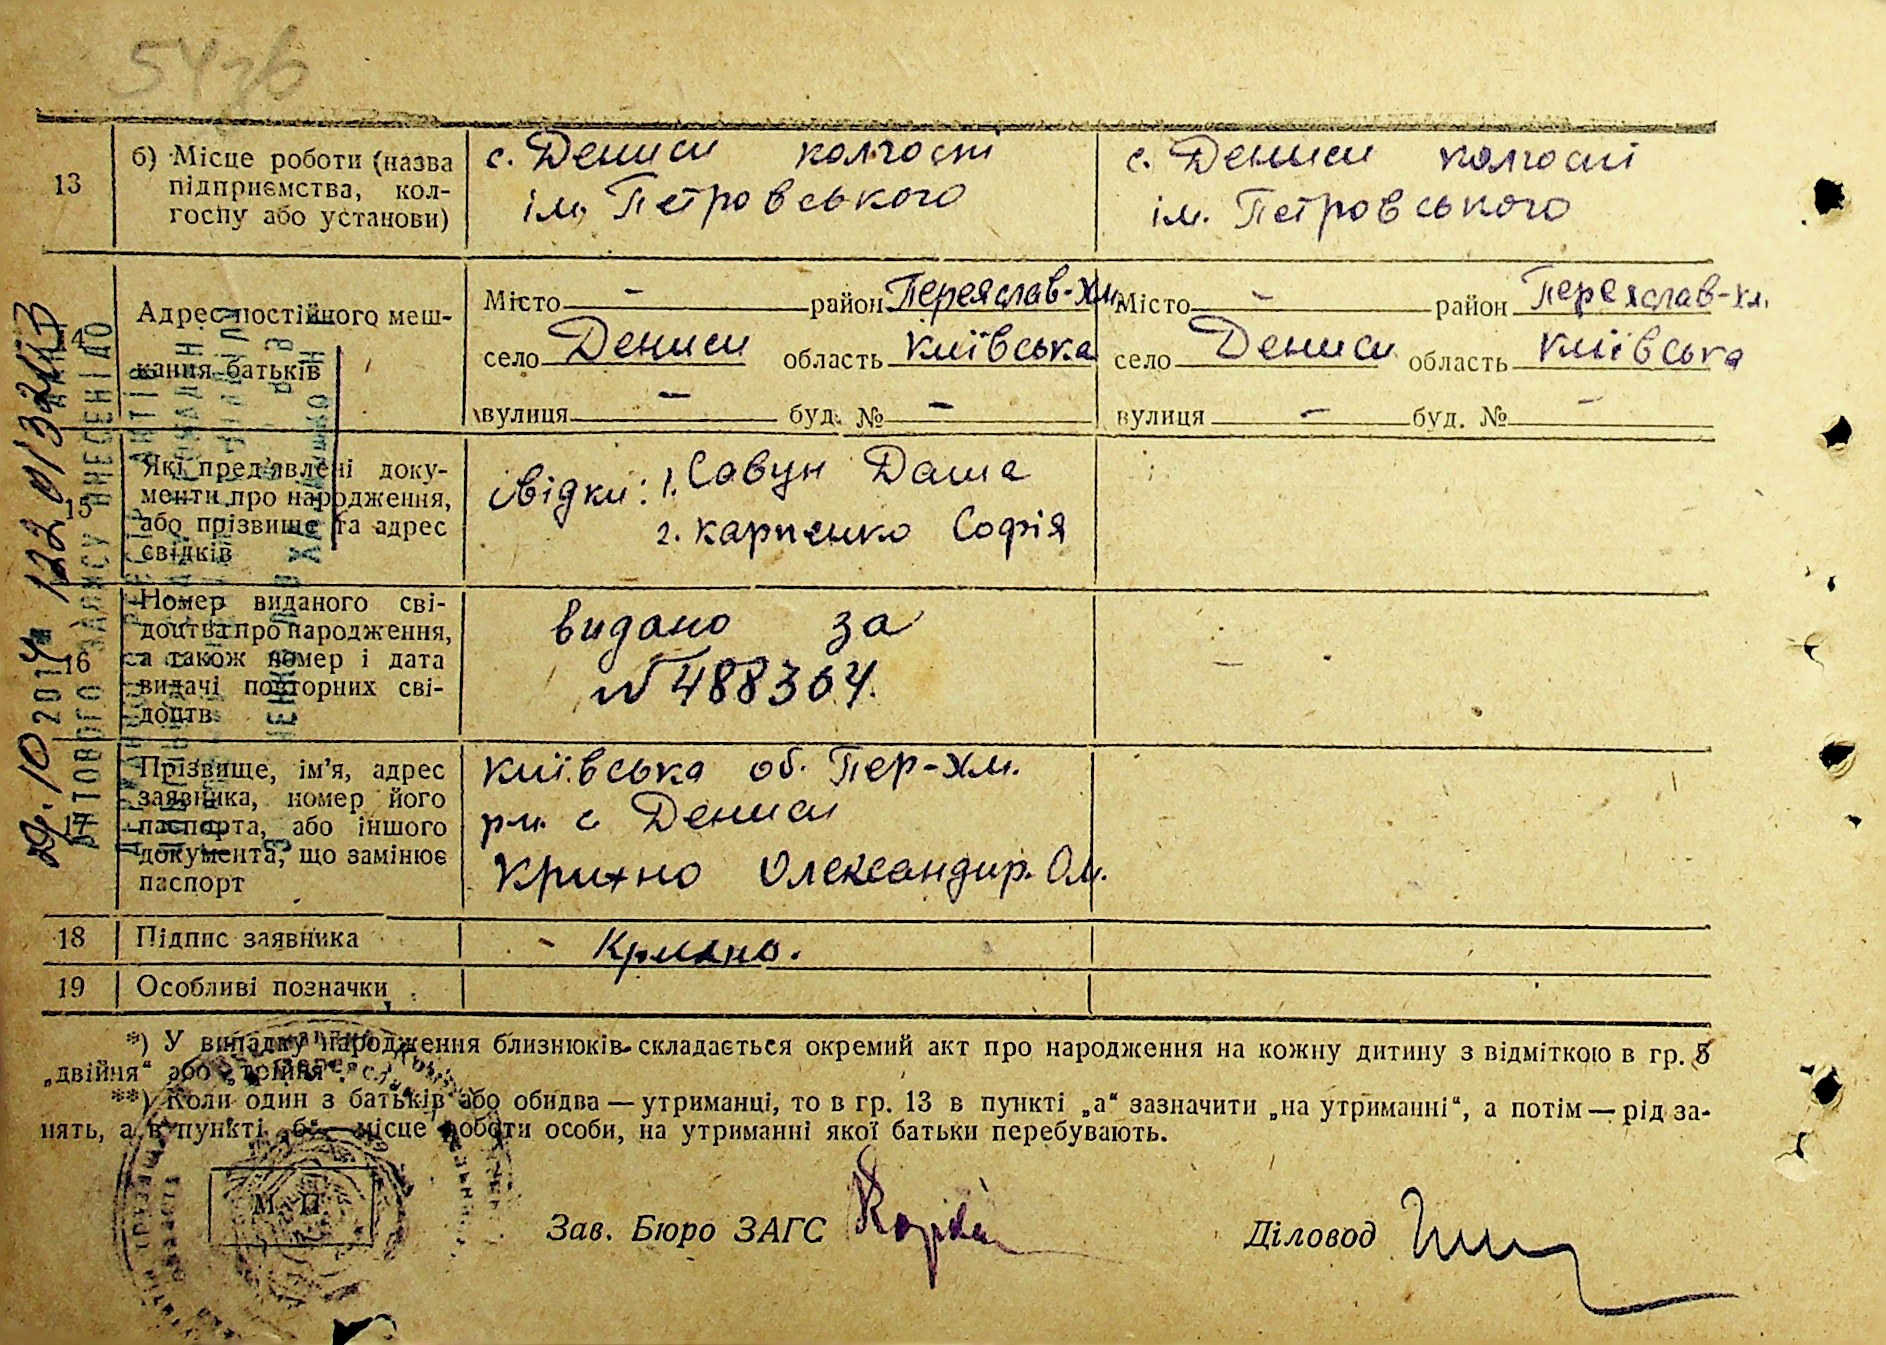 54
13
б) Місце роботи (назва
підприємства, кол-
госпу або установи)
с. Дениси колгосп
ім. Петровського
с. Дениси колгосп
ім. Петровського
14
Адрес постійного меш-
кання батьків
Місто — район Переяслав-Хм.
село Дениси область Київська
вулиця — буд. № —
Місто — район Переяслав-Хм.
село Дениси область Київська
вулиця — буд. № —
15
Які пред'явлені доку-
менти про народження,
або прізвище та адрес
свідків
свідки: 1. Савун Даша
2. Карпенко Софія
16
Номер виданого сві-
доцтва про народження,
а також номер і дата
видачі повторних сві-
доцтв
видано за
№ 488364.
17
Прізвище, ім'я, адрес
заявника, номер його
паспорта, або іншого
документа, що замінює
паспорт
Київська об. Пер-Хм.
рн. с. Дениси
Крихно Олександр. Ом.
18
Підпис заявника
Крихно.
19
Особливі позначки
*) У випадку народження близнюків складається окремий акт про народження на кожну дитину з відміткою в гр. 5
„двійня“ або „трійня“.
**) Коли один з батьків або обидва — утриманці, то в гр. 13 в пункті „а“ зазначити „на утриманні“, а потім — рід за-
нять, а в пункті „б“ — місце роботи особи, на утриманні якої батьки перебувають.
М П
Зав. Бюро ЗАГС
Діловод